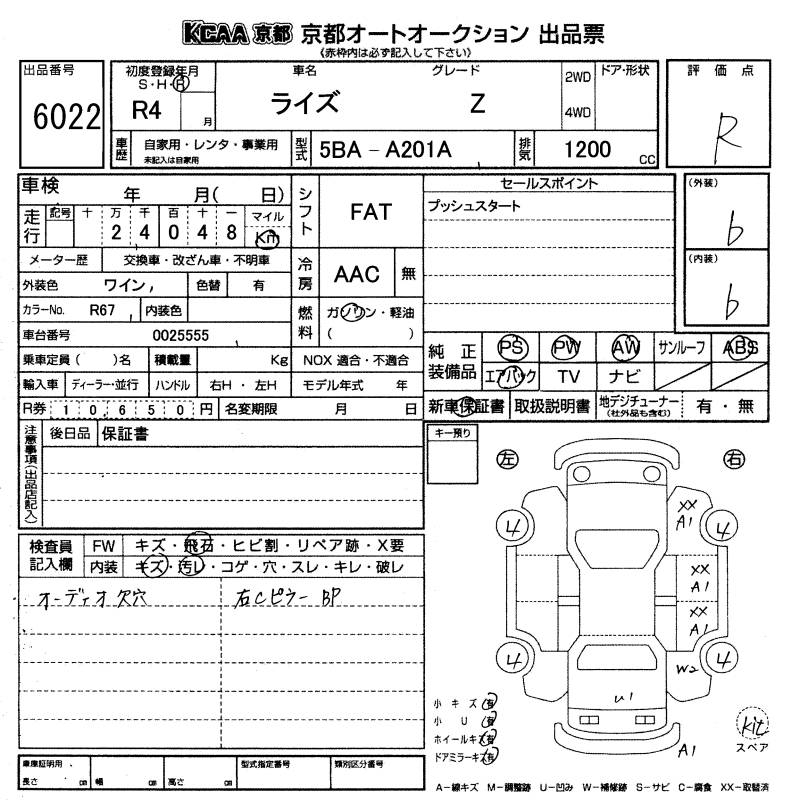 KCAA 京都 京都オートオークション 出品票
(赤枠内は必ず記入して下さい)
出品番号
6022
初度登録年月
S・H・R
R4
月
車名
ライズ
グレード
Z
2WD
4WD
ドア・形状
評価点
R
車歴
自家用・レンタ・事業用
未記入は自家用
型式
5BA - A201A
排気
1200 CC
車検 年 月( 日)
走行
記号 十 万 千 百 十 一 マイル
2 4 0 4 8 Km
メーター歴 交換車・改ざん車・不明車
外装色 ワイン, 色替 有
カラーNo. R67 , 内装色
車台番号 0025555
乗車定員( )名 積載量 Kg
輸入車 ディーラー・並行 ハンドル 右H・左H
R券 10,650円 名変期限 月 日
シフト FAT
冷房 AAC 無
燃料 ガソリン・軽油
( )
NOX 適合・不適合
モデル年式 年
セールスポイント
プッシュスタート
(外装)
b
(内装)
b
純正装備品
PS PW AW サンルーフ ABS
エアバック TV ナビ
新車保証書 取扱説明書 地デジチューナー(社外品も含む) 有・無
注意事項(出品店記入)
後日品 保証書
キー預り
左 右
検査員記入欄
FW キズ・飛石・ヒビ割・リペア跡・X要
内装 キズ・汚レ・コゲ・穴・スレ・キレ・破レ
オーディオ欠穴
右Cピラー BP
XX
A1
4 4
XX
A1
XX
A1
4 4
W2
U1
A1
小キズ 有
小U 有
ホイールキズ 有
ドアミラーキズ 有
kit
スペア
車庫証明用、
長さ cm 幅 cm 高さ cm
型式指定番号
類別区分番号
A-線キズ M-調整跡 U-凹み W-補修跡 S-サビ C-腐食 XX-取替済